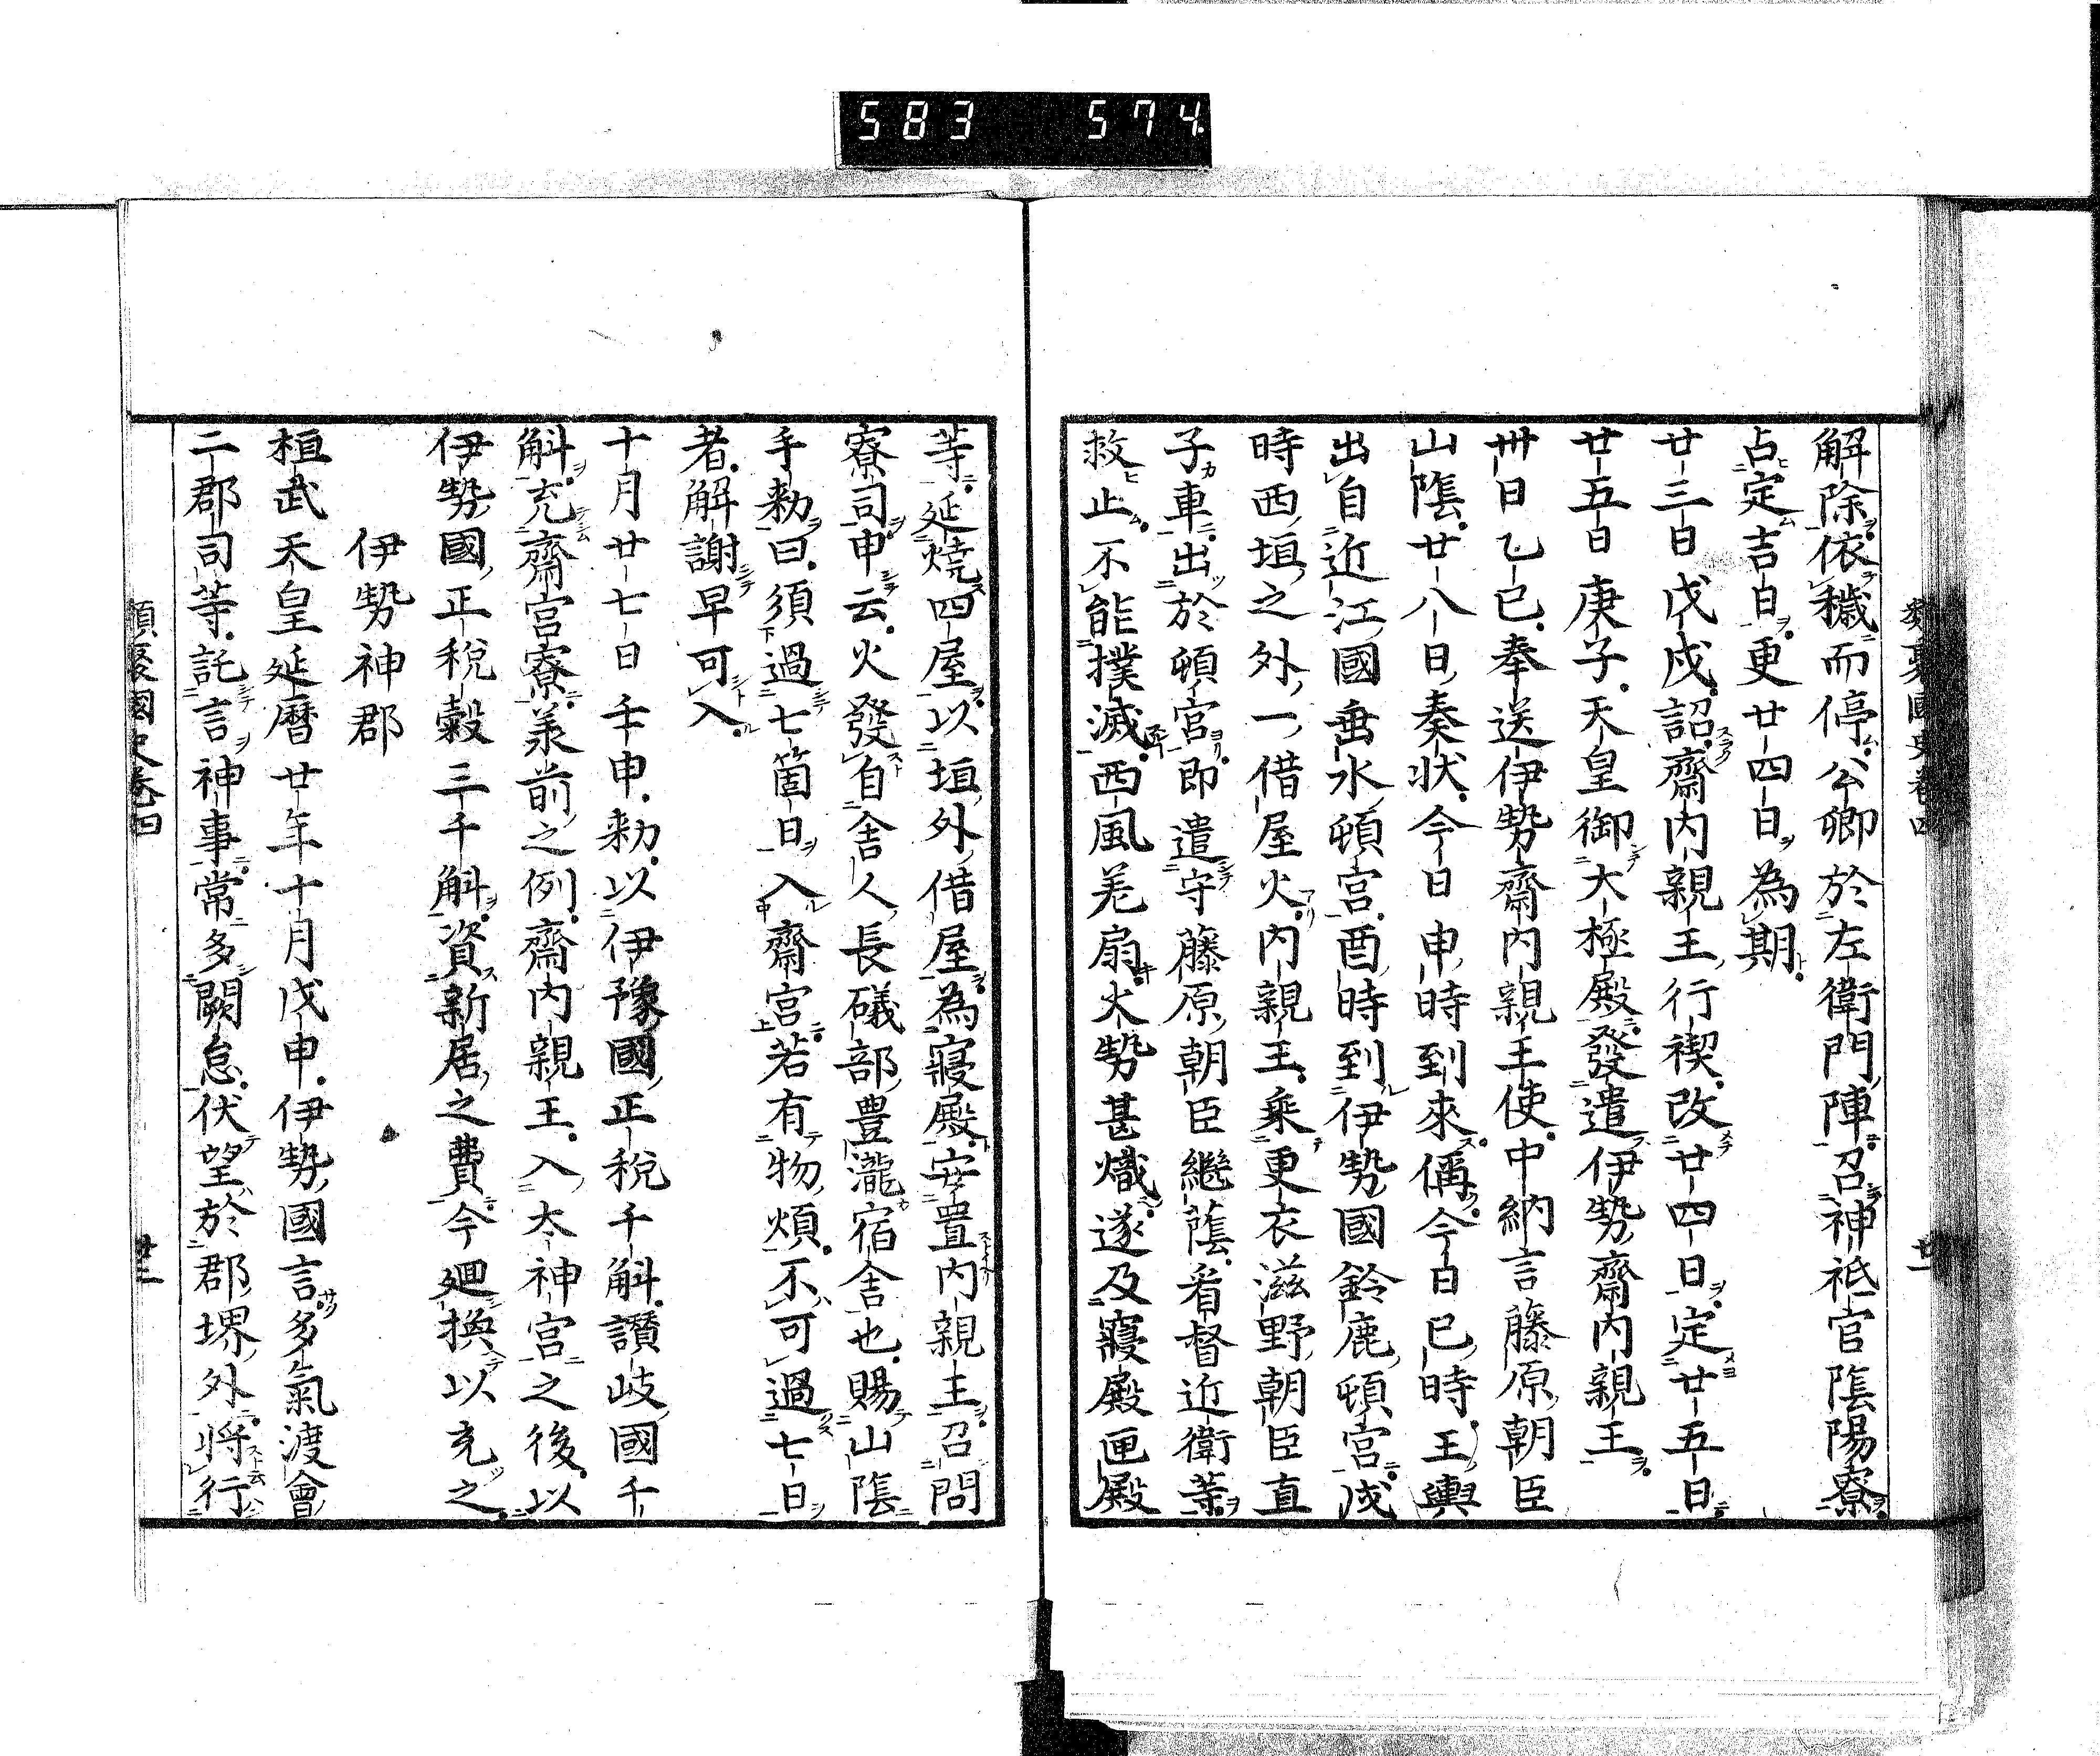 583 574
解除依穢而停公卿於左衛門陣召神祇官隂陽寮
占定吉日更廿四日為期
廿三日戊戌詔齋內親王行禊改廿四日定廿五日
廿五日庚子天皇御大極殿發遣伊勢齋內親王
卅日乙巳奉送伊勢齋內親王使中納言藤原朝臣
山隂廿八日奏状今日申時到來偁今日巳時王輿
出自近江國垂水頓宮酉時到伊勢國鈴鹿頓宮戌
時西垣之外一借屋火內親王乘更衣滋野朝臣直
子車出於頓宮即遣守藤原朝臣繼䕃看督近衛等
救止不能撲滅西風羌扇火勢甚熾遂及寢殿匣殿
等延燒四屋以垣外借屋為寢殿安置內親王召問
寮司申云火發自舍人長礒部豊瀧宿舍也賜山隂
手勅曰須過七箇日入齋宮若有物煩不可過七日
者解謝早可入
十月廿七日壬申勅以伊豫國正税千斛讃岐國千
斛充齋宮寮羕前之例齋內親王入大神宮之後以
伊勢國正税穀三千斛資新居之費今廻換以充之
伊勢神郡
桓武天皇延曆廿年十月戊申伊勢國言多氣渡會
二郡司等託言神事常多闕怠伏望於郡堺外將行
類聚國史卷四